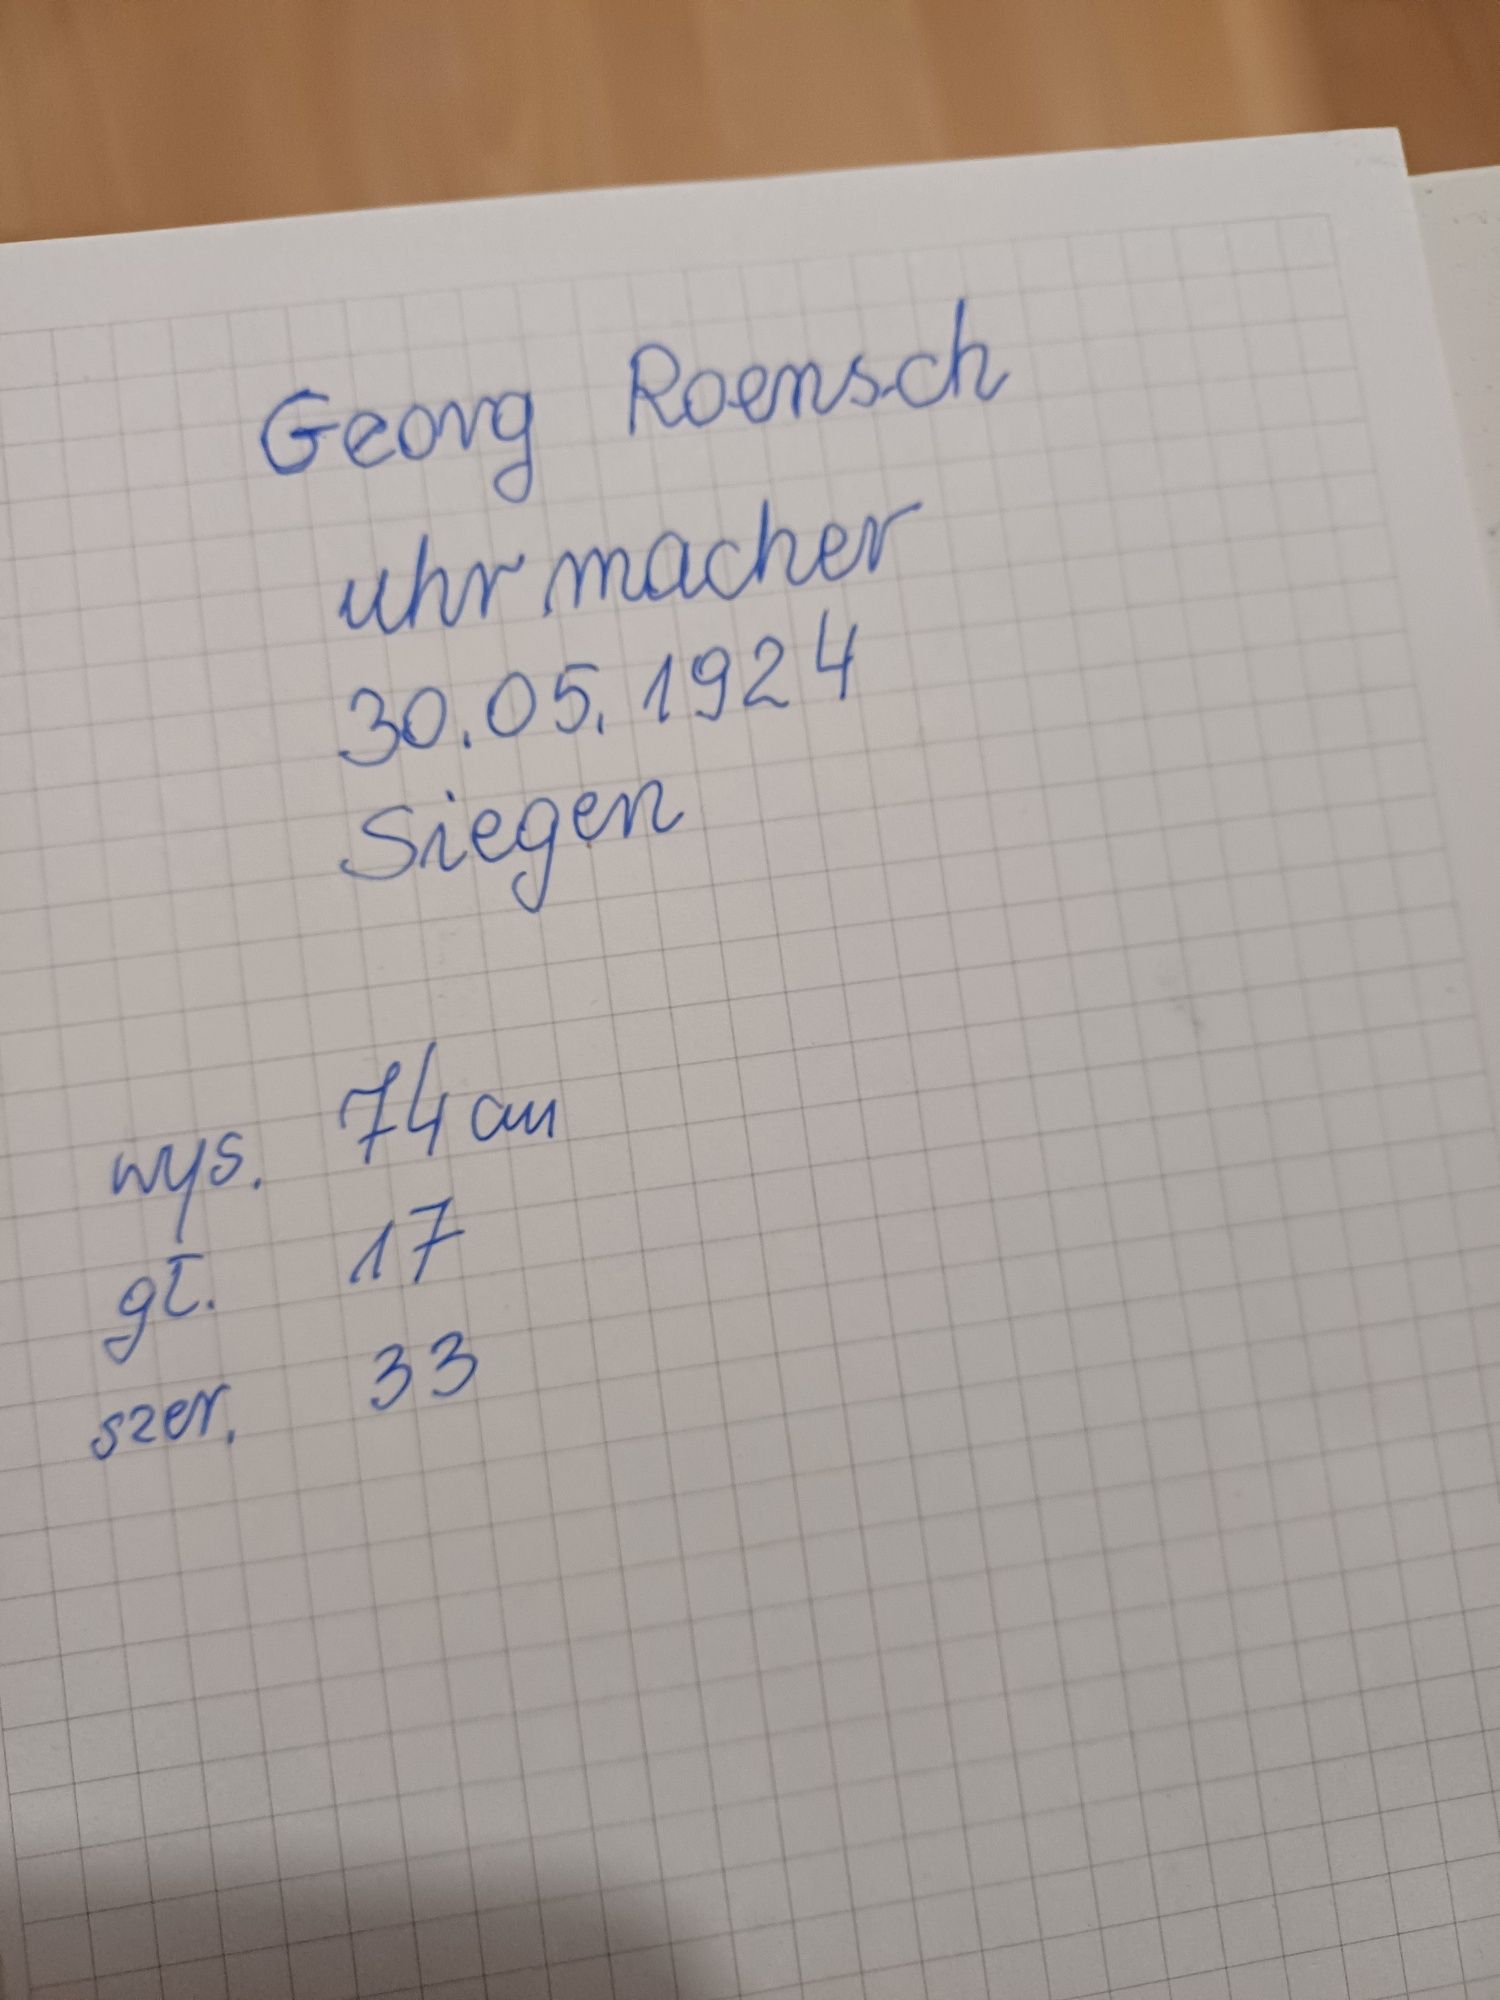 Georg Roensch
uhrmacher
30.05.1924
Siegen
wys. 74 cm
gł. 17
szer. 33